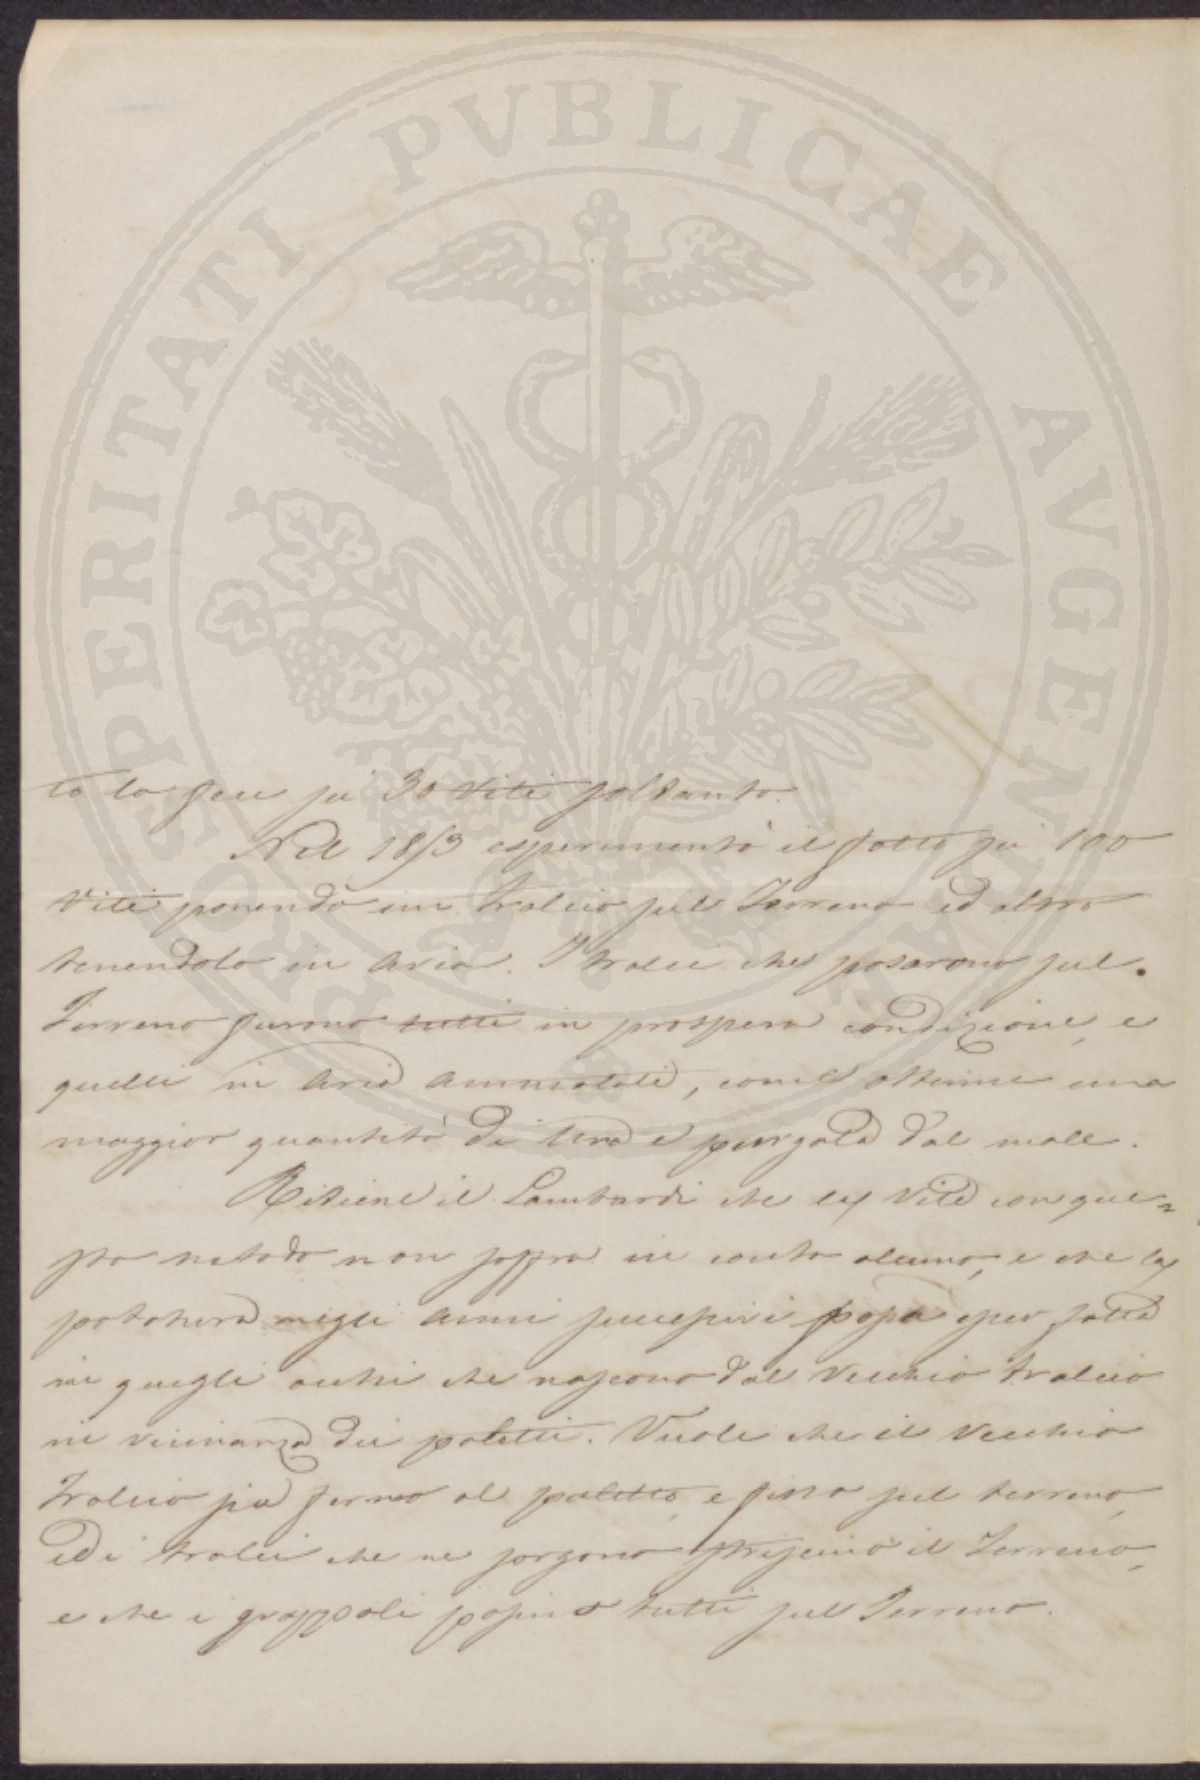 PROSPERITATI PVBLICAE AVGENDAE
to lo fece su 30 Viti soltanto.
Nel 1853 esperimentò il fatto su 100
Viti ponendo un tralcio sul Terreno ed altro
tenendolo in aria. I tralci che posarono sul
Terreno furono tutti in prospera condizione, e
quelli in aria ammalati, con
maggior quantità di Uva e purgata dal male.
Ritiene il Lombardi che la Vite con que=
sto metodo non soffra in conto alcuno, e che la
potatura negli anni successivi possa esser fatta
in quegli occhi che nascono dal Vecchio tralcio
in vicinanza dei paletti. Vuole che il Vecchio
tralcio sia fermo al paletto, e fisso sul terreno,
ed i tralci che ne sorgono strisciino il Terreno,
e che i grappoli posino tutti sul Terreno.